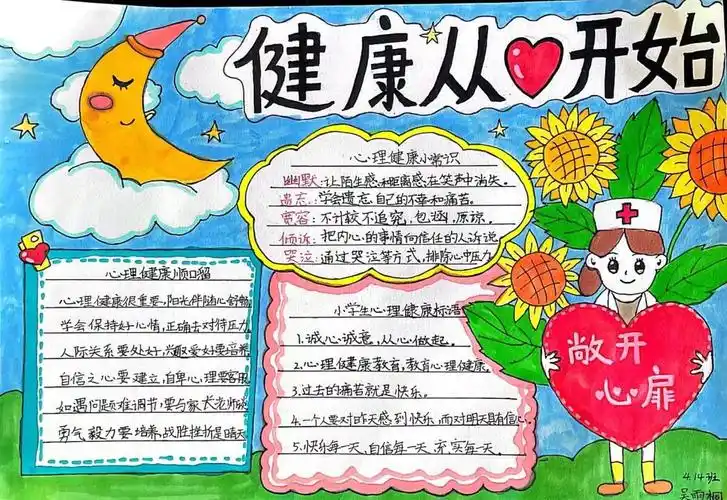 健康从开始
心理健康小常识
幽默:让陌生感和距离感在笑声中消失。
遗忘:学会遗忘自己的不幸和痛苦。
宽容:不计较不追究,包涵,原谅。
倾诉:把内心的事情向信任的人诉说
哭泣:通过哭泣等方式,排除心中压力
心理健康顺口溜
心理健康很重要,阳光伴随心舒畅
学会保持好心情,正确去对待压力
人际关系要处好,兴趣爱好要培养
自信之心要建立,自卑心理要客服
如遇问题难调节,要与家长老师
勇气毅力要培养,战胜挫折是晴天
小学生心理健康标语
1.诚心诚意,从心做起。
2.心理健康教育,教育心理健康。
3.过去的痛苦就是快乐。
4.一个人要对昨天感到快乐,而对明天具有信心。
5.快乐每一天,自信每一天,充实每一天。
敞开
心扉
414班
吴雨